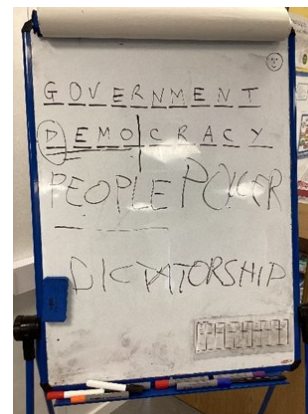 GOVERNMENT
DEMOCRACY
PEOPLE POWER
DICTATORSHIP